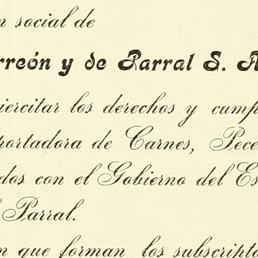 n social de
rreón y de Parral S. A
ejercitar los derechos y cump
portadora de Carnes, Pece
dos con el Gobierno del Es
Parral.
n que forman los subscripto